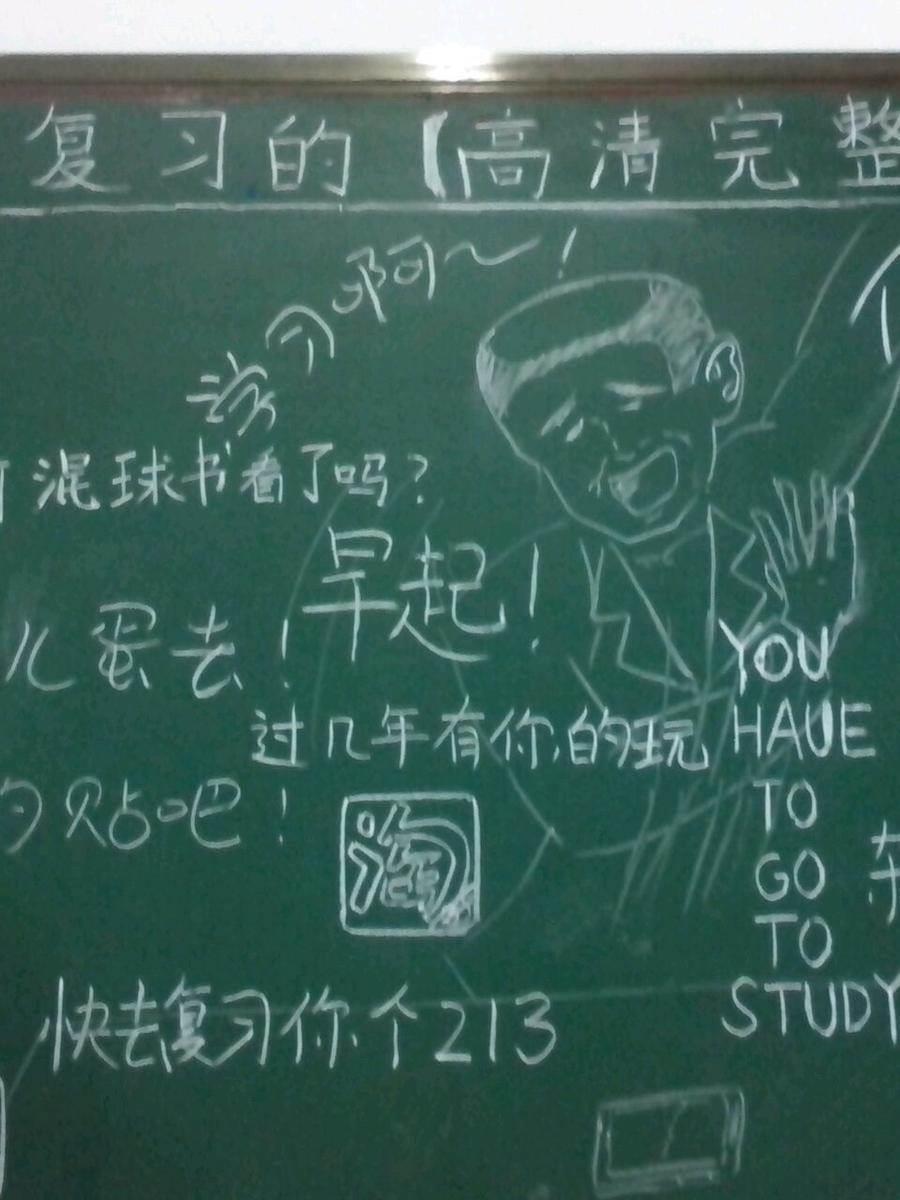 复习的【高清完整
啊~!
混球书看了吗?
早起!
儿蛋去!
过几年有你的玩
贴吧!
淘
快去复习你个213
YOU
HAUE
TO
GO
TO
STUDY